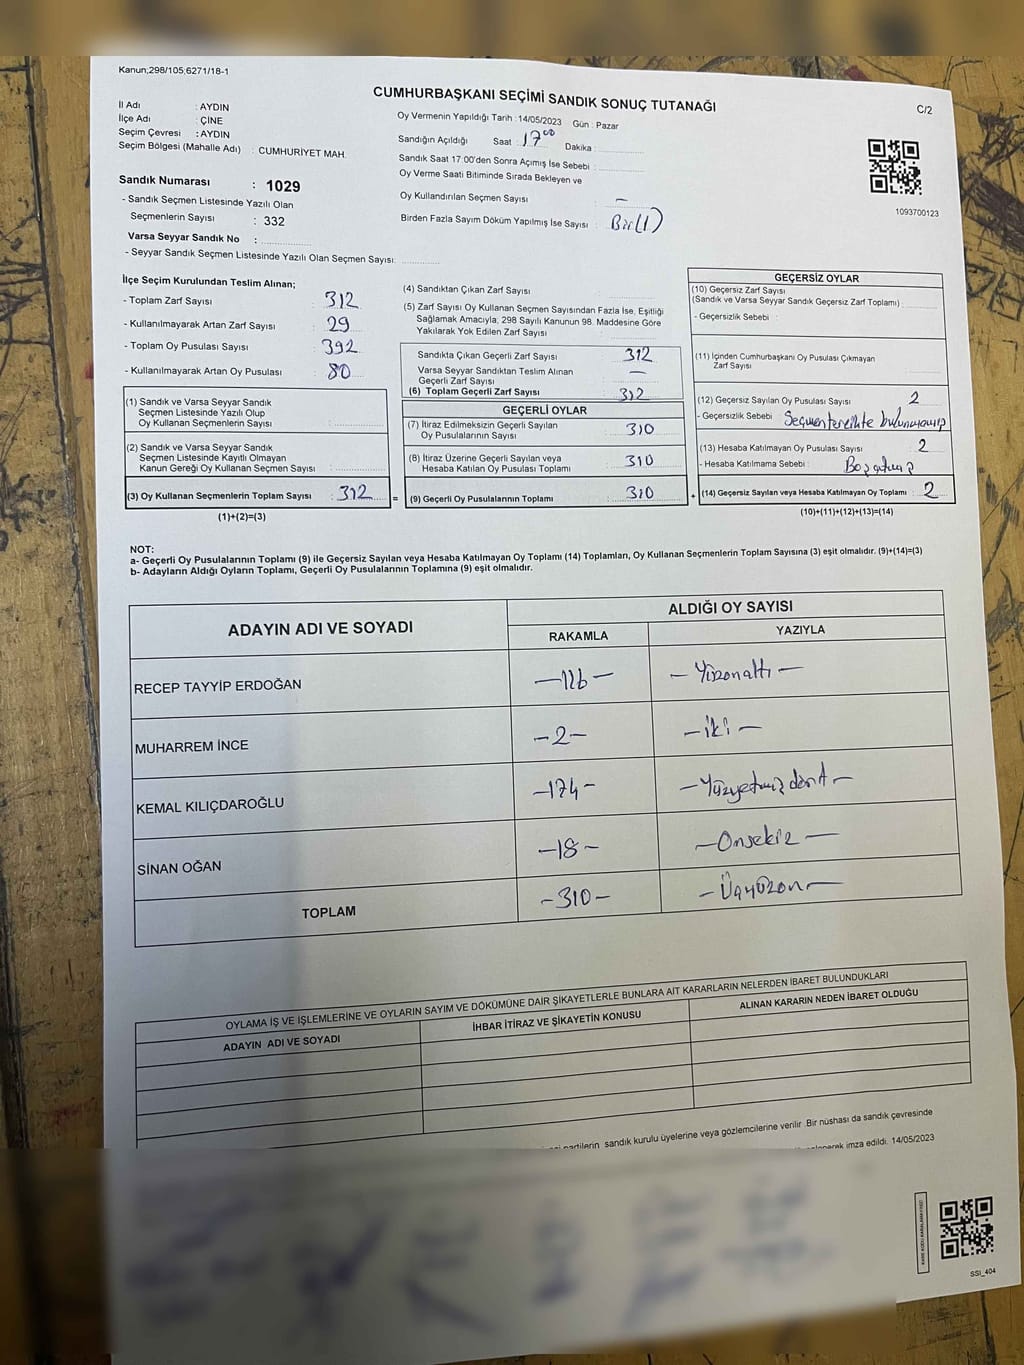 Kanun;298/105;6271/18-1
CUMHURBAŞKANI SEÇİMİ SANDIK SONUÇ TUTANAĞI
C/2
İl Adı : AYDIN
İlçe Adı : ÇİNE
Seçim Çevresi : AYDIN
Seçim Bölgesi (Mahalle Adı) : CUMHURİYET MAH.
Oy Vermenin Yapıldığı Tarih : 14/05/2023 Gün : Pazar
Sandığın Açıldığı Saat 17 00 Dakika :
Sandık Saat 17:00'den Sonra Açımış İse Sebebi :
Oy Verme Saati Bitiminde Sırada Bekleyen ve
Oy Kullandırılan Seçmen Sayısı : —
Birden Fazla Sayım Döküm Yapılmış İse Sayısı : Bir(1)
1093700123
Sandık Numarası : 1029
- Sandık Seçmen Listesinde Yazılı Olan
Seçmenlerin Sayısı : 332
Varsa Seyyar Sandık No :
- Seyyar Sandık Seçmen Listesinde Yazılı Olan Seçmen Sayısı:
İlçe Seçim Kurulundan Teslim Alınan;
- Toplam Zarf Sayısı : 312
- Kullanılmayarak Artan Zarf Sayısı : 29
- Toplam Oy Pusulası Sayısı : 392
- Kullanılmayarak Artan Oy Pusulası : 80
(1) Sandık ve Varsa Seyyar Sandık
Seçmen Listesinde Yazılı Olup
Oy Kullanan Seçmenlerin Sayısı :
(2) Sandık ve Varsa Seyyar Sandık
Seçmen Listesinde Kayıtlı Olmayan
Kanun Gereği Oy Kullanan Seçmen Sayısı :
(3) Oy Kullanan Seçmenlerin Toplam Sayısı : 312
(1)+(2)=(3)
(4) Sandıktan Çıkan Zarf Sayısı :
(5) Zarf Sayısı Oy Kullanan Seçmen Sayısından Fazla İse, Eşitliği
Sağlamak Amacıyla, 298 Sayılı Kanunun 98. Maddesine Göre
Yakılarak Yok Edilen Zarf Sayısı :
Sandıkta Çıkan Geçerli Zarf Sayısı : 312
Varsa Seyyar Sandıktan Teslim Alınan
Geçerli Zarf Sayısı : —
(6) Toplam Geçerli Zarf Sayısı : 312
GEÇERLİ OYLAR
(7) İtiraz Edilmeksizin Geçerli Sayılan
Oy Pusulalarının Sayısı : 310
(8) İtiraz Üzerine Geçerli Sayılan veya
Hesaba Katılan Oy Pusulası Toplamı : 310
= (9) Geçerli Oy Pusulalarının Toplamı : 310 +
GEÇERSİZ OYLAR
(10) Geçersiz Zarf Sayısı
(Sandık ve Varsa Seyyar Sandık Geçersiz Zarf Toplamı) :
- Geçersizlik Sebebi :
(11) İçinden Cumhurbaşkanı Oy Pusulası Çıkmayan
Zarf Sayısı :
(12) Geçersiz Sayılan Oy Pusulası Sayısı : 2
- Geçersizlik Sebebi : Seçmen tercihte bulunmayıp
(13) Hesaba Katılmayan Oy Pusulası Sayısı : 2
- Hesaba Katılmama Sebebi :
(14) Geçersiz Sayılan veya Hesaba Katılmayan Oy Toplamı : 2
(10)+(11)+(12)+(13)=(14)
NOT:
a- Geçerli Oy Pusulalarının Toplamı (9) ile Geçersiz Sayılan veya Hesaba Katılmayan Oy Toplamı (14) Toplamları, Oy Kullanan Seçmenlerin Toplam Sayısına (3) eşit olmalıdır. (9)+(14)=(3)
b- Adayların Aldığı Oyların Toplamı, Geçerli Oy Pusulalarının Toplamına (9) eşit olmalıdır.
ADAYIN ADI VE SOYADI ALDIĞI OY SAYISI
RAKAMLA YAZIYLA
RECEP TAYYİP ERDOĞAN —116— — Yüzonaltı —
MUHARREM İNCE —2— — iki —
KEMAL KILIÇDAROĞLU —174— — Yüzyetmiş dört —
SİNAN OĞAN —18— — Onsekiz —
TOPLAM —310— — Üçyüzon —
OYLAMA İŞ VE İŞLEMLERİNE VE OYLARIN SAYIM VE DÖKÜMÜNE DAİR ŞİKAYETLERLE BUNLARA AİT KARARLARIN NELERDEN İBARET BULUNDUKLARI
ADAYIN ADI VE SOYADI İHBAR İTİRAZ VE ŞİKAYETİN KONUSU ALINAN KARARIN NEDEN İBARET OLDUĞU
partilerin sandık kurulu üyelerine veya gözlemcilerine verilir. Bir nüshası da sandık çevresinde
imza edildi. 14/05/2023
SSI_404